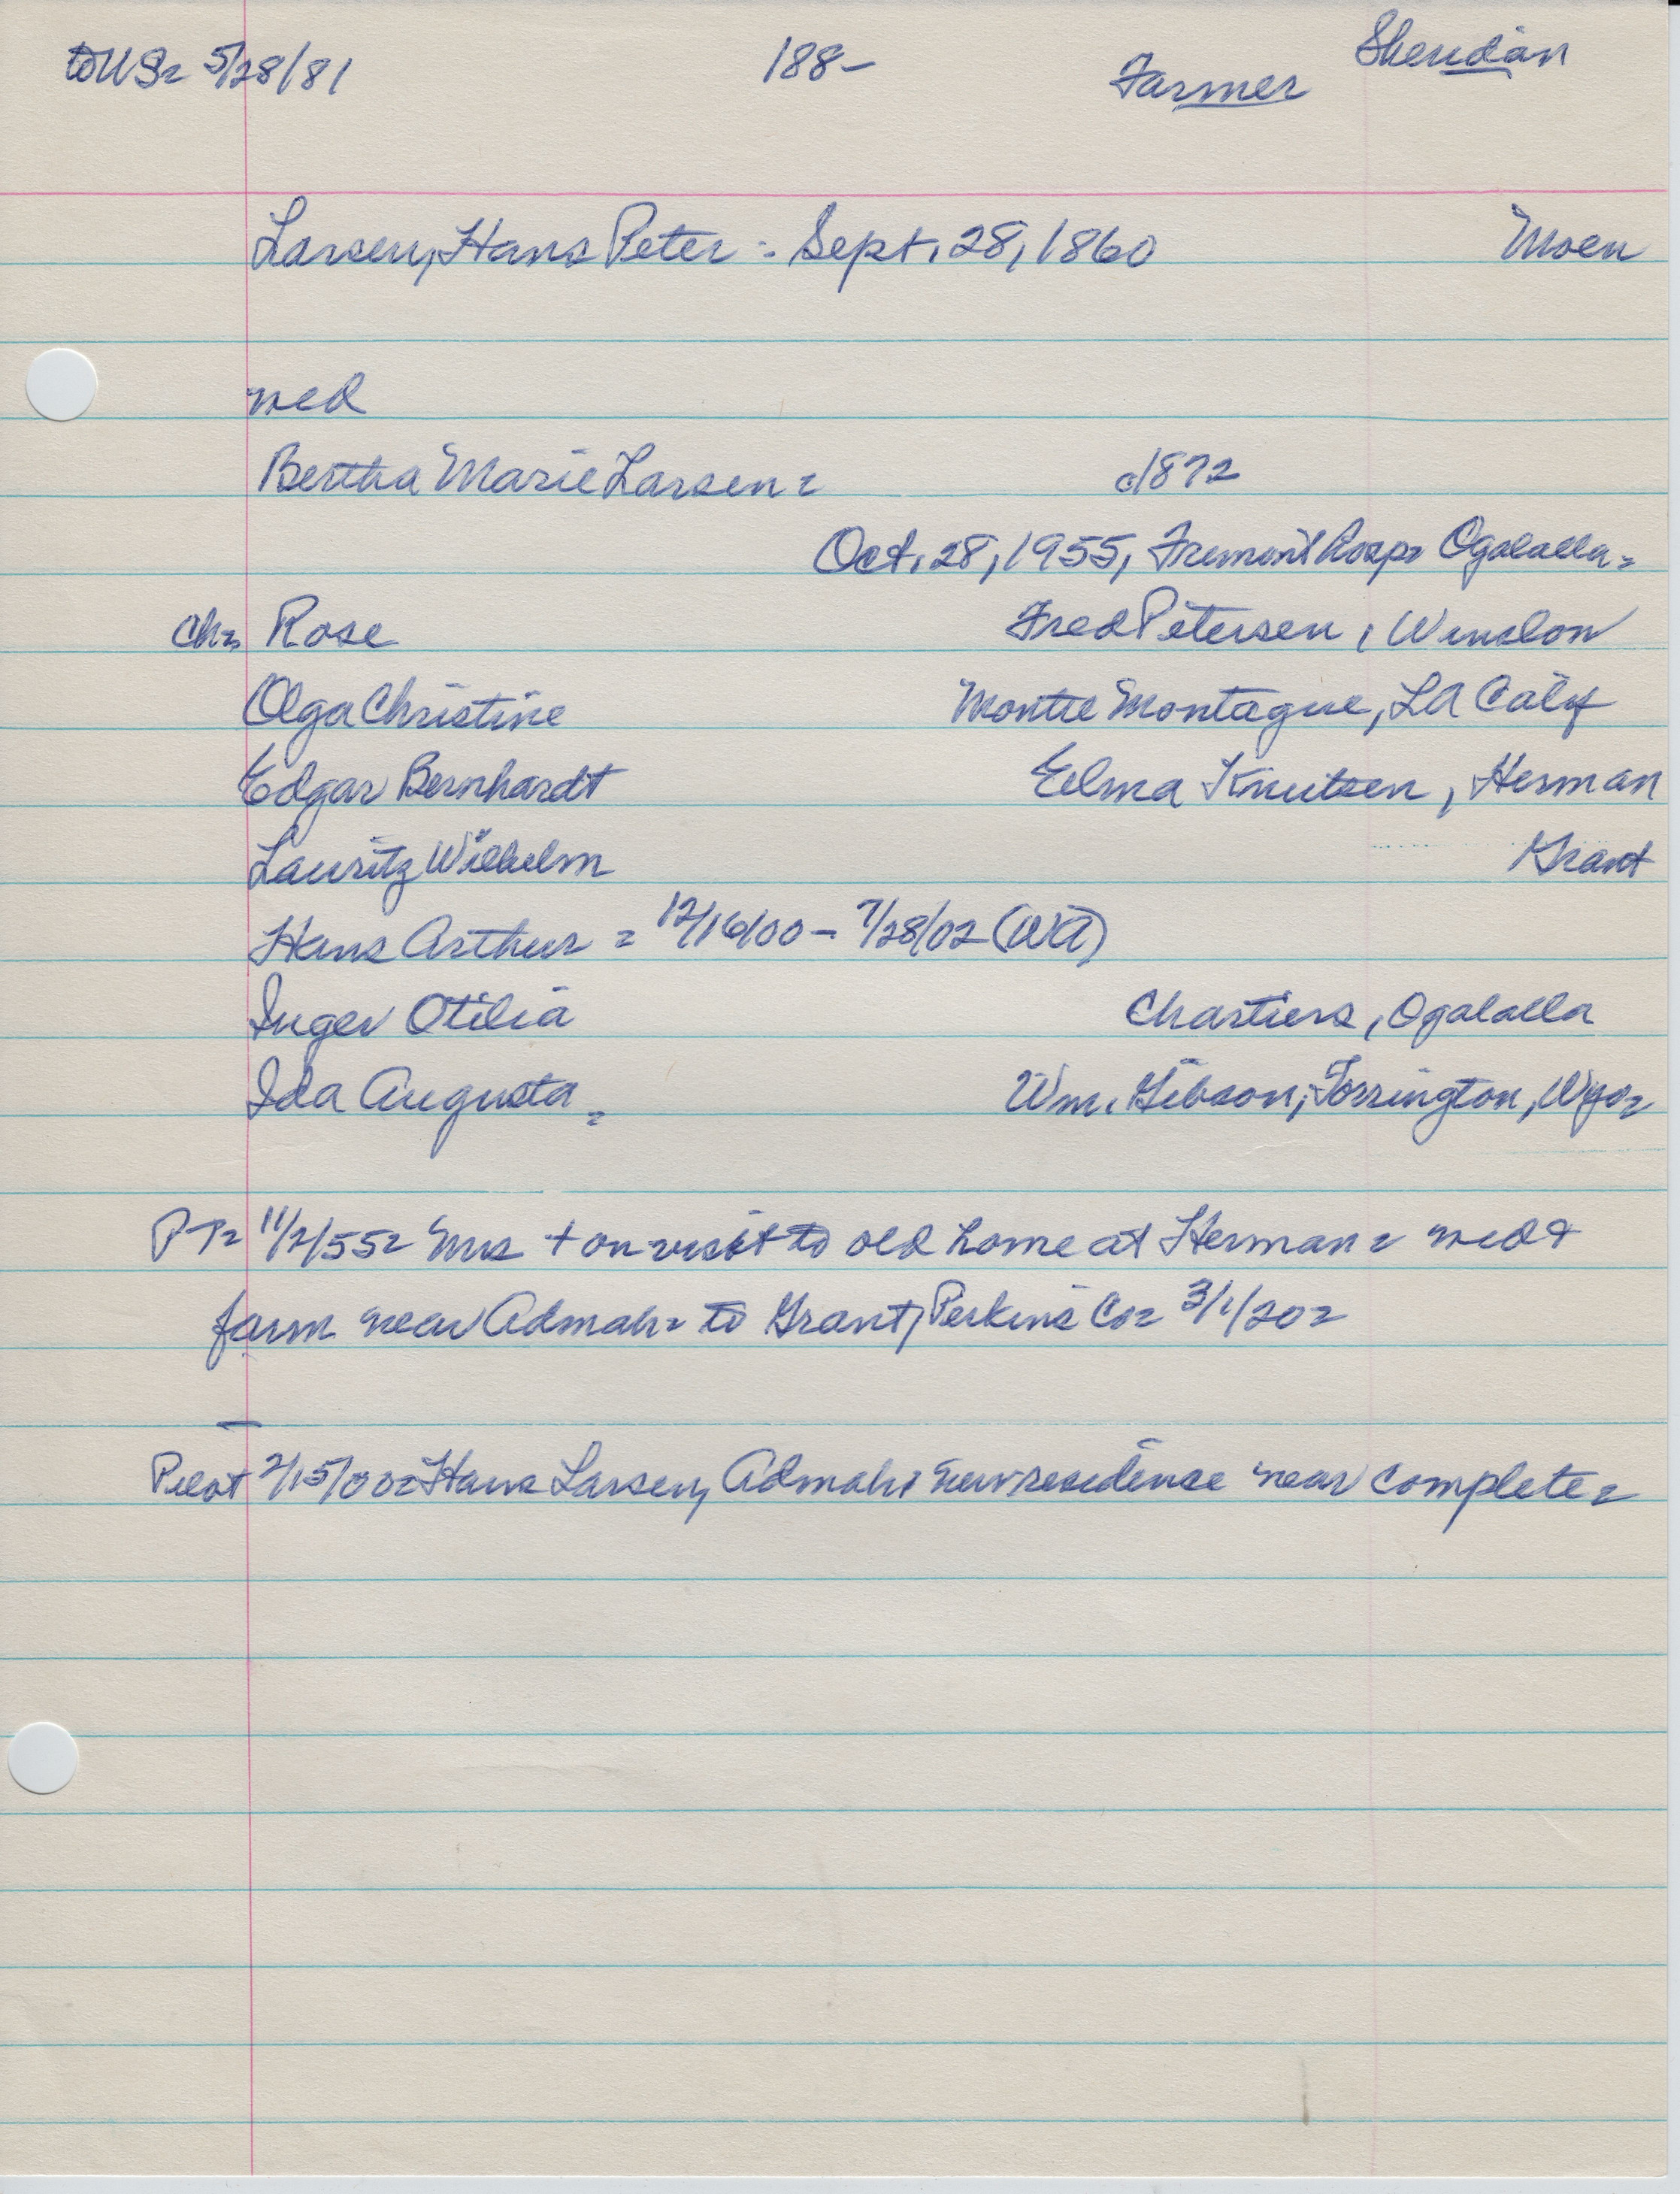 to US= 5/28/81 188- Farmer Sheridan
Larsen, Hans Peter = Sept. 28, 1860 Moen
med
Bertha Marie Larsen = c1872
Oct. 28, 1955, Fremont hosp= Ogalalla=
Ch= Rose Fred Petersen, Winslow
Olga Christine Monte Montague, LA Calif
Edgar Bernhardt Elma Knutsen, Herman
Lauritz Wilhelm Grant
Hans Arthur = 12/16/00 - 7/28/02 (WA)
Inger Otilia Chartiers, Ogalalla
Ida Augusta = Wm. Gibson, Torrington, Wyo=
PT= 11/2/55= Mrs + on visit to old home at Herman = med &
farm near Admah= to Grant, Perkins Co= 3/1/20=
Pilot 2/15/00= Hans Larsen, Admah, new residense near complete=